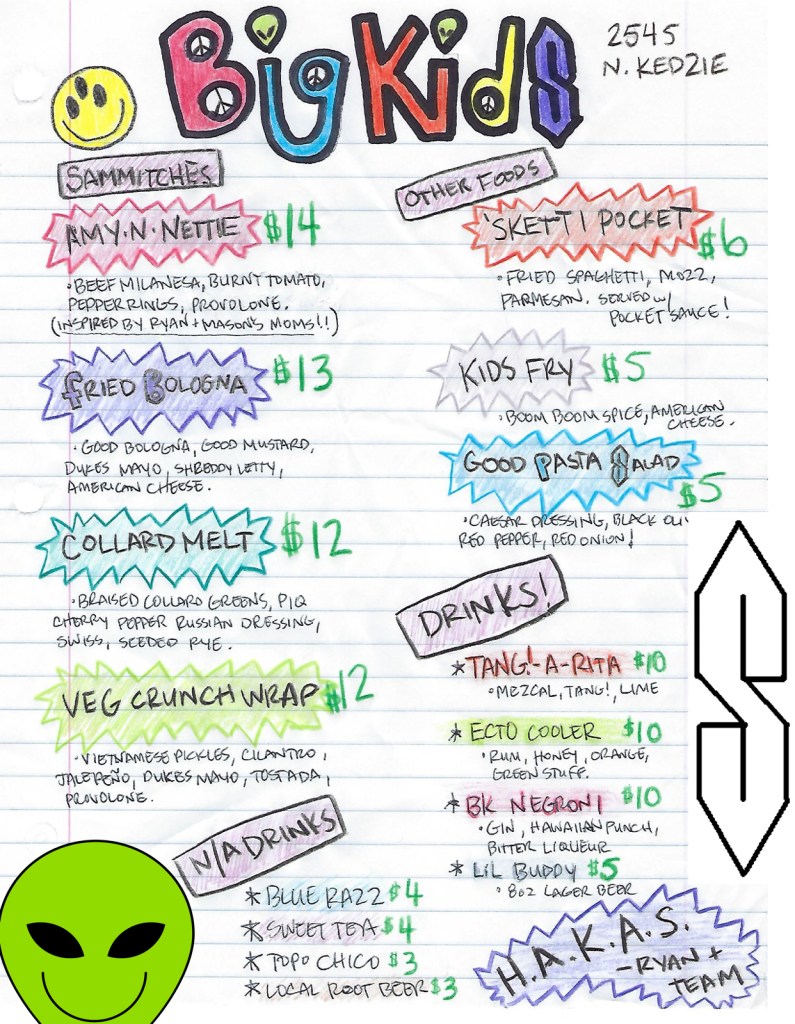 Big Kids
2545
N. KEDZIE
SAMMITCHES
AMY·N·NETTIE $14
·BEEF MILANESA, BURNT TOMATO,
PEPPER RINGS, PROVOLONE.
(INSPIRED BY RYAN + MASON'S MOMS!!)
FRIED BOLOGNA $13
·GOOD BOLOGNA, GOOD MUSTARD,
DUKES MAYO, SHREDDY LETTY,
AMERICAN CHEESE.
COLLARD MELT $12
·BRAISED COLLARD GREENS, PIQ
CHERRY PEPPER RUSSIAN DRESSING,
SWISS, SEEDED RYE.
VEG CRUNCH WRAP $12
·VIETNAMESE PICKLES, CILANTRO,
JALEPEÑO, DUKES MAYO, TOSTADA,
PROVOLONE.
N/A DRINKS
*BLUE RAZZ $4
*SWEET TEA $4
*TOPO CHICO $3
*LOCAL ROOT BEER $3
OTHER FOODS
'SKETTI POCKET $6
·FRIED SPAGHETTI, MOZZ,
PARMESAN. SERVED W/
POCKET SAUCE!
KIDS FRY $5
·BOOM BOOM SPICE, AMERICAN
CHEESE.
GOOD PASTA SALAD $5
·CAESAR DRESSING, BLACK OLI
RED PEPPER, RED ONION!
DRINKS!
*TANG!-A-RITA $10
·MEZCAL, TANG!, LIME
*ECTO COOLER $10
·RUM, HONEY, ORANGE,
GREEN STUFF.
*BK NEGRONI $10
·GIN, HAWAIIAN PUNCH,
BITTER LIQUEUR
*LIL BUDDY $5
·8oz LAGER BEER
H.A.K.A.S.
-RYAN +
TEAM